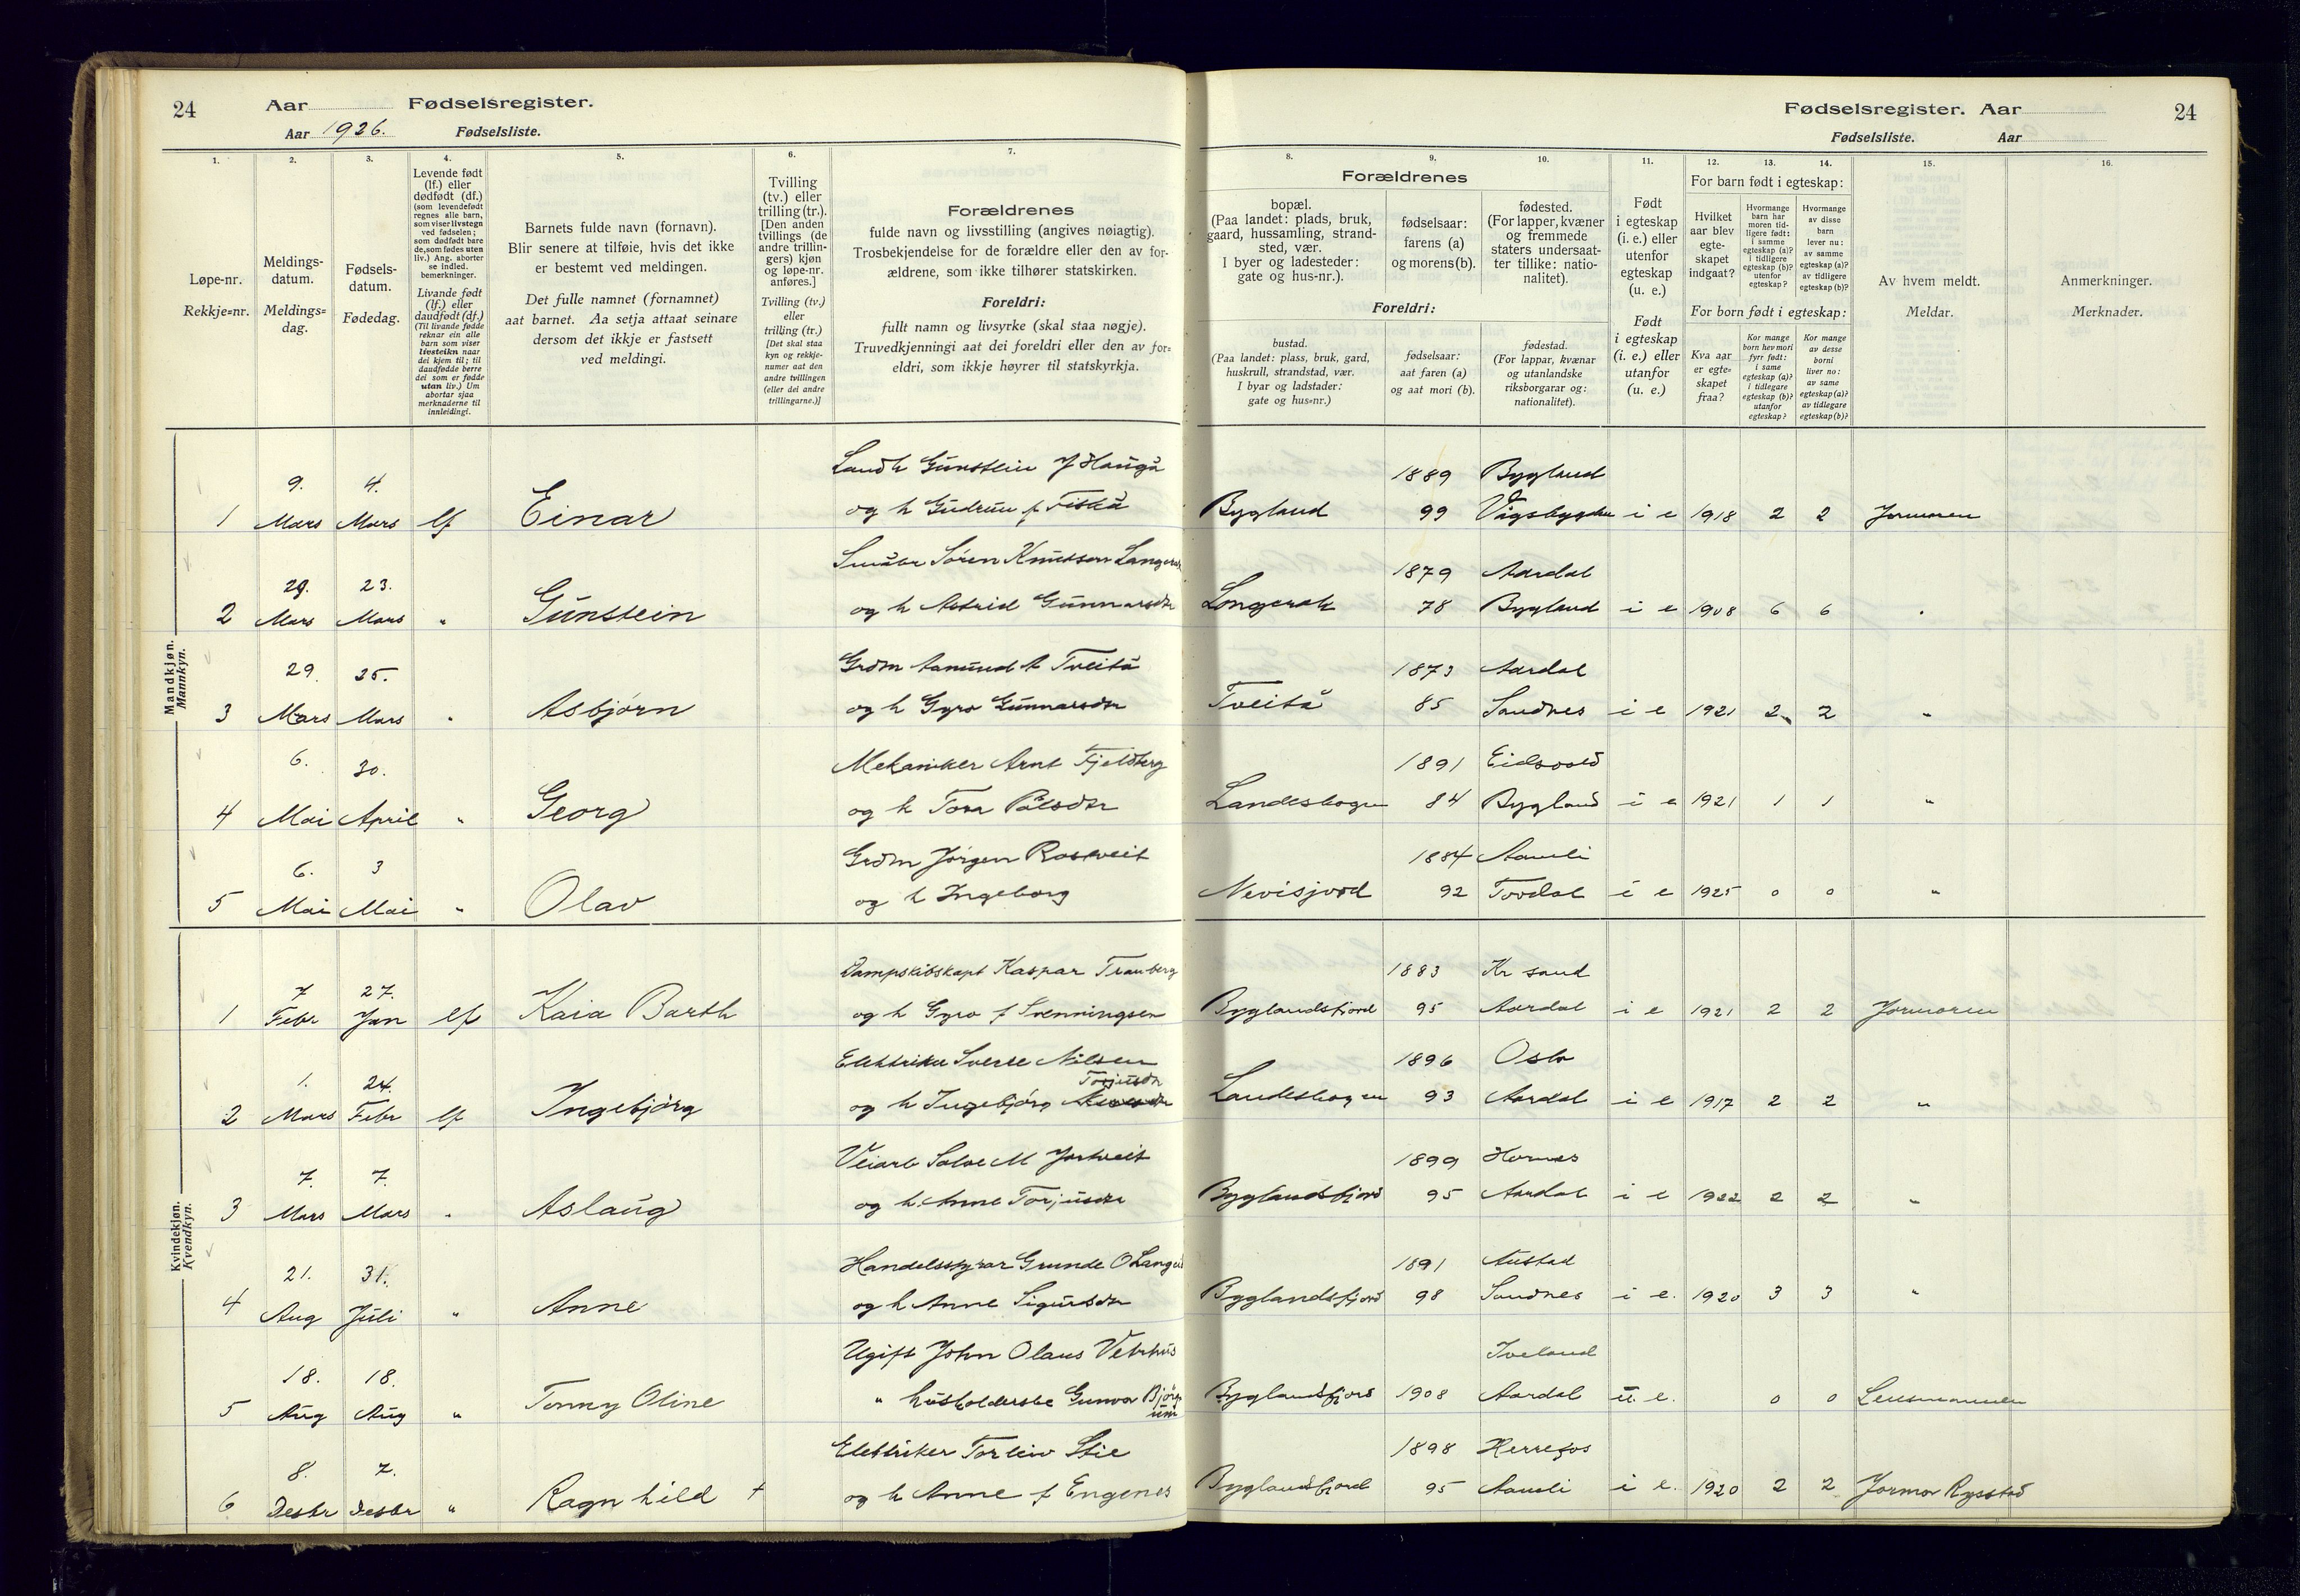 24 Aar Fødselsregister.
Aar 1926. Fødselsliste.
Fødselsregister. Aar 24
Fødselsliste. Aar
1. 2. 3. 4. 5. 6. 7.
Løpe-nr.
Rekkje=nr.
Meldings-
datum.
Meldings=
dag.
Fødsels-
datum.
Fødedag.
Levende født
(lf.) eller
dødfødt (df.)
(som levendefødt
regnes alle barn,
som viser livstegn
ved fødselen;
som dødfødt bare
de, som fødes uten
liv.) Ang. aborter
se indled.
bemerkninger.
Livande født
(lf.) eller
daudfødt (df.)
(Til livande fødde
reknar ein alle
barn som viser
livsteikn naar
dei kjem til; til
daudfødde berre
dei som er fødde
utan liv.) Um
abortar sjaa
merknaderne til
innleidingi.
Barnets fulde navn (fornavn).
Blir senere at tilføie, hvis det ikke
er bestemt ved meldingen.
Det fulle namnet (fornamnet)
aat barnet. Aa setja attaat seinare
dersom det ikkje er fastsett
ved meldingi.
Tvilling
(tv.) eller
trilling (tr.).
[Den anden
tvillings (de
andre trillin-
gers) kjøn
og løpe-nr.
anføres.]
Tvilling (tv.)
eller
trilling (tr.)
[Det skal staa
kyn og rekkje-
numer aat den
andre tvillingen
(eller dei andre
trillingarne.)]
Forældrenes
fulde navn og livsstilling (angives nøiagtig).
Trosbekjendelse for de forældre eller den av for-
ældrene, som ikke tilhører statskirken.
Foreldri:
fullt namn og livsyrke (skal staa nøgje).
Truvedkjenningi aat dei foreldri eller den av for=
eldri, som ikkje høyrer til statskyrkja.
8. 9. 10. 11. 12. 13. 14. 15. 16.
Forældrenes
bopæl.
(Paa landet: plads, bruk,
gaard, hussamling, strand-
sted, vær.
I byer og ladesteder:
gate og hus-nr.).
fødselsaar:
farens (a)
og morens (b).
fødested.
(For lapper, kvæner
og fremmede
staters undersaat-
ter tillike: natio-
nalitet).
Foreldri:
bustad.
(Paa landet: plass, bruk, gard,
huskrull, strandstad, vær.
I byar og ladstader:
gate og hus=nr.)
fødselsaar:
aat faren (a)
og aat mori (b).
fødestad.
(For lappar, kvænar
og utanlandske
riksborgarar og:
nationalitet).
Født
i egteskap
(i. e.) eller
utenfor
egteskap
(u. e.)
Født
i egteskap
(i. e.) eller
utanfor
(u. e.)
For barn født i egteskap:
Hvilket
aar blev
egte-
skapet
indgaat?
Hvormange
barn har
moren tid-
ligere født:
i samme
egteskap (a)?
i tidligere
egteskap (b)?
utenfor
egteskap?
Hvormange
av disse
barn
lever nu:
av samme
egteskap (a)?
av tidligere
egteskap (b)?
For born født i egteskap:
Kva aar
er egte=
skapet
fraa?
Kor mange
born hev mori
fyrr født:
i same
egteskap (a)?
i tidlegare
egteskap (b)?
utanfor
egteskap?
Kor mange
av desse
borni
liver no:
av same
egteskap (a)?
av tidlegare
egteskap (b)?
Av hvem meldt.
Meldar.
Anmerkninger.
Merknader.
Mandkjøn.
Mannkyn.
9. 4. Gunstein J Haugå 1889 Bygland
1 Mars Mars lf Einar og h Gudrun f Fiskå Bygland 99 Vågsbygden i e 1918 2 2 Jormoren
29. 23. Småbr Sören Knutsson Langerak 1879 Aardal
2 Mars Mars " Gunstein og h Astrid Gunnarsdtr Longerak 78 Bygland i e 1908 6 6 "
29. 25. Grdm Aamund A Tveitå 1873 Aardal
3 Mars Mars " Asbjørn og h Gyro Gunnarsdtr Tveitå 85 Sandnes i e 1921 2 2 "
6. 30. Mekaniker Arnt Fjeldberg 1891 Eidsvold
4 Mai April " Georg og h Tora Pålsdtr Landeskogen 84 Bygland i e 1921 1 1 "
6. 3 Grdm Jørgen Rostveit 1884 Aamli
5 Mai Mai " Olav og h Ingeborg Nevisjord 92 Tovdal i e 1925 0 0 "
Kvindekjøn.
Kvendkyn.
7 27. Dampskibskapt Kaspar Tranberg 1883 Kr sand
1 Febr Jan lf Kaia Barth og h Gyro f Svenningsen Byglandsfjord 95 Aardal i e 1921 2 2 Jormoren
1. 24. Elektriker Sverre Nilsen 1896 Oslo
Torjusdtr
2 Mars Febr lf Ingebjörg og h Ingebjörg Landeskogen 93 Aardal i e 1917 2 2 "
7. 7. Veiarb Salve M Jortveit 1899 Hornes
3 Mars Mars " Aslaug og h Anne Torjusdtr Byglandsfjord 95 Aardal i e 1922 2 2 "
21. 31. Handelsstyrar Grunde O Langerak 1891 Austad
4 Aug Juli " Anne og h Anne Sigursdtr Byglandsfjord 98 Sandnes i e. 1920 3 3 "
18. 18. Ugift John Olaus Vetrhus Iveland
5 Aug Aug " Tonny Oline " husholderske Gunvor Bjørg Byglandsfjord 1908 Aardal u. e. 0 0 Lensmannen
um
8. 7. Elektriker Torleiv Stie 1898 Herrefos
6 Desbr Desbr " Ragnhild + og h Anne f Engenes Byglandsfjord 95 Aamli i e. 1920 2 2 Jormor Rysstad